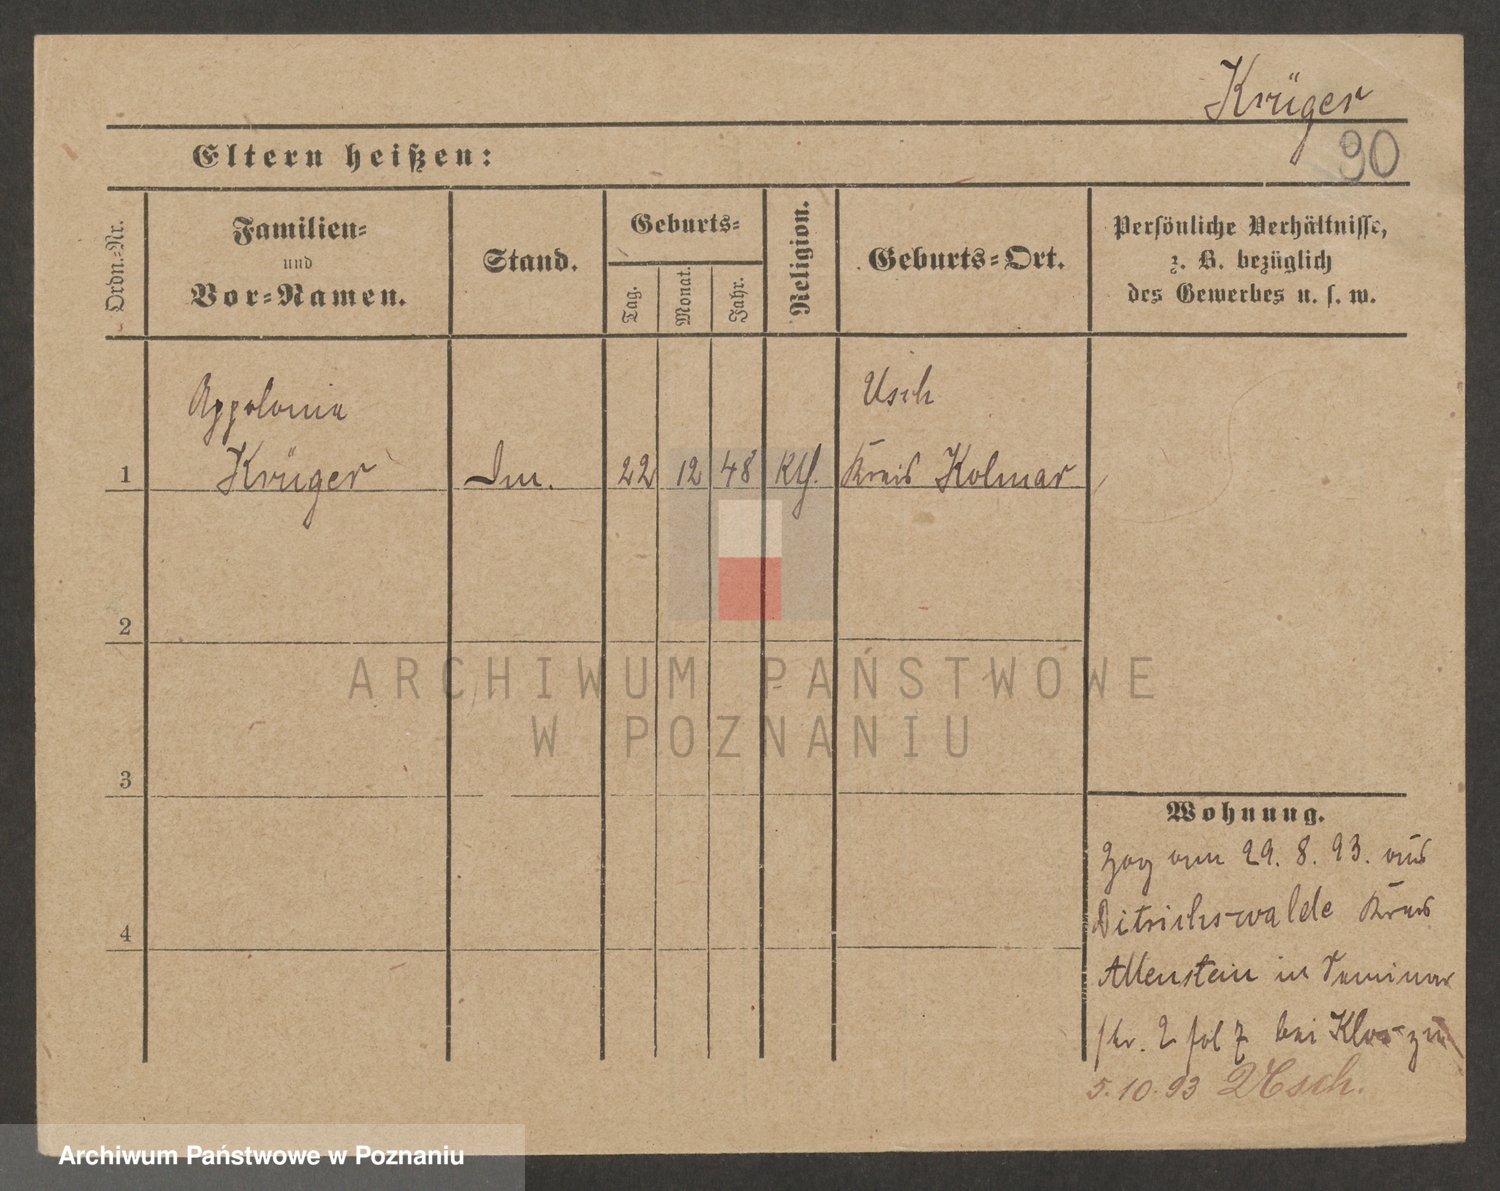 Krüger
90
Eltern heißen:
Ordn.-Nr.
Familien-
und
Vor-Namen.
Stand.
Geburts-
Tag.
Monat.
Jahr.
Religion.
Geburts-Ort.
Persönliche Verhältnisse,
z. B. bezüglich
des Gewerbes u. s. w.
Appolonia
Krüger
22
12
48
Kth.
Usch
Kreis Kolmar
1
2
3
4
ARCHIWUM PAŃSTWOWE
W POZNANIU
Wohnung.
Zog am 29. 8. 93. aus
Ditrichswalde Kreis
Allenstein in Seminar
str. 2 bei Klos zu
5. 10. 93 Usch.
Archiwum Państwowe w Poznaniu